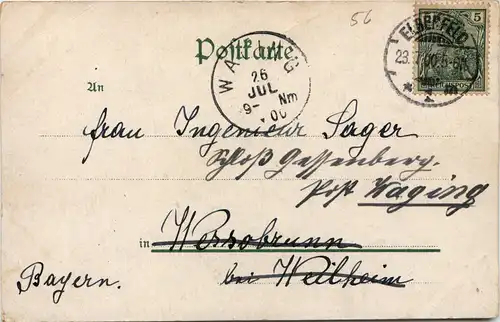 56
Postkarte
5
ELBERFELD
WAGING
26
JUL
9- Nm
00
An
Frau Ingenieur Sager
Schloß Gessenberg.
Post Waging
in Wessobrunn
bei Weilheim
Bayern.